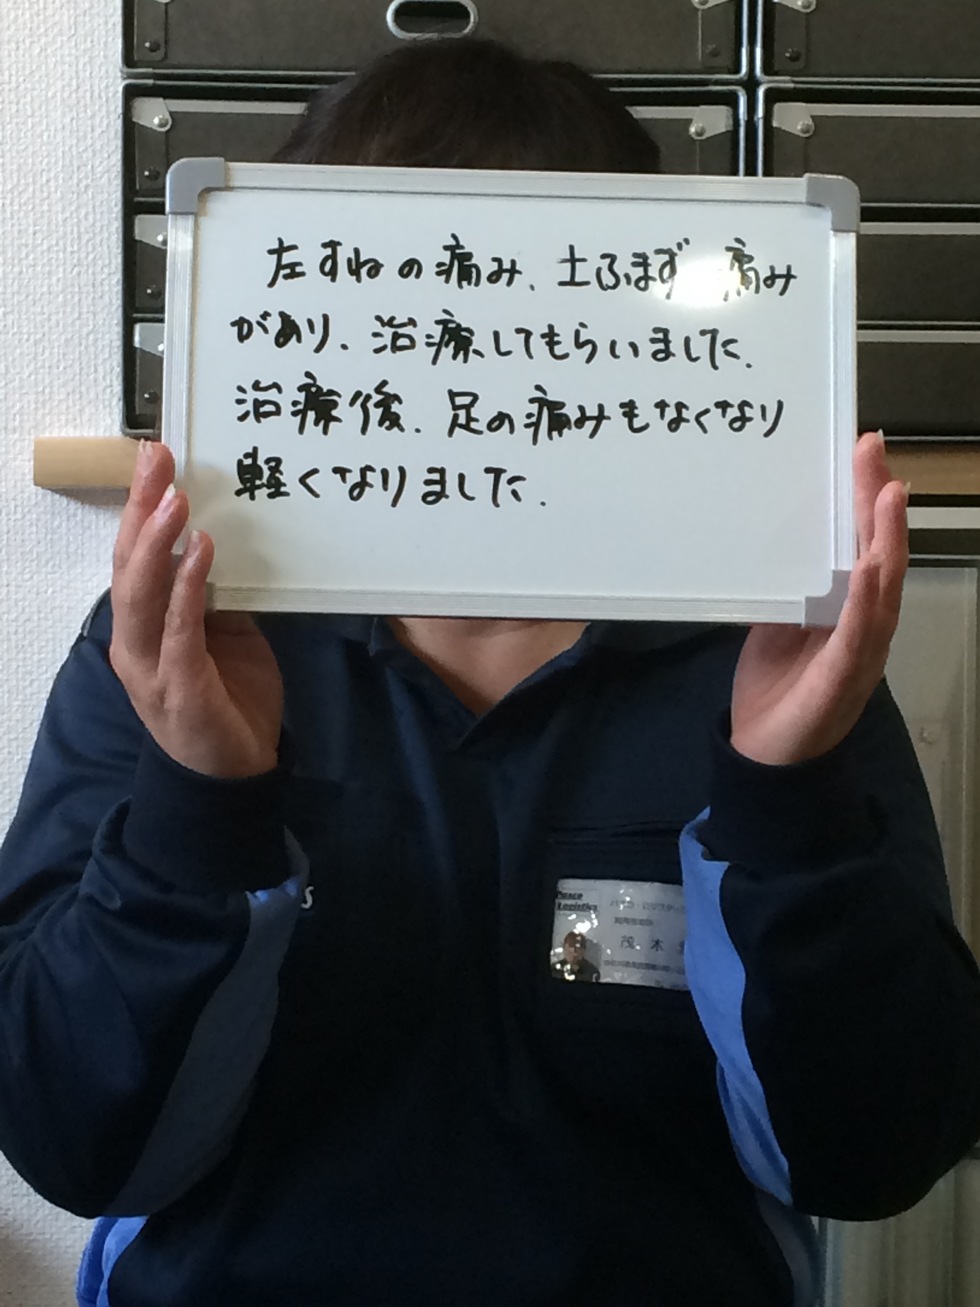 左すねの痛み、土ふまず 痛み
があり、治療してもらいました。
治療後、足の痛みもなくなり
軽くなりました。
Logistics
茂木
S